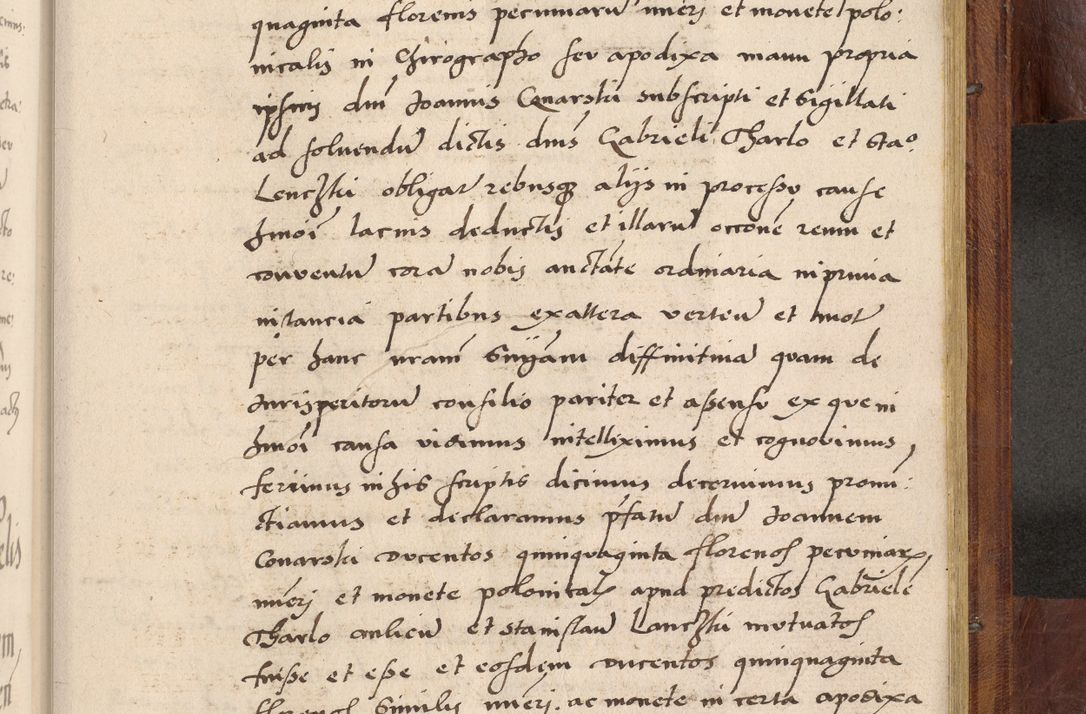 quaginta florenis pecuniarū nūeri et monete polo:
nicalis in Chirographo seu apodixa manu propria
ipsius dnī Joannis Conarskii subscripti et sigillati
ad soluendū dictis dnīs Gabrieli Tharlo et Stao.
obligat rebusqȝ alijs in processu cause
hmōi lacius deductis et illarū occōne reum et
conventū corā nobis auctāte ordinaria in prima
instancia partibus ex altera verteñ et mot̄
per hanc nrām snīam diffinitiuā quam de
Jurisperitorū consilio pariter et assensu ex que in
hmōi causa vidimus intelliximus et cognovimus,
ferimus in his scriptis dicimus decernimus pronū:
ctiamus et declaramus pfatū dnū Joannem
Conarski ducentos quinquaginta florenos pecuniarꝝ,
nūeri et monete polonicaꝝ apud predictos Gabrielē
Tharlo et Stanislaū mutuatos
fuisse et esse et eosdem ducentos quinquaginta
florenos similis nūeri ac monete in certa apodixa